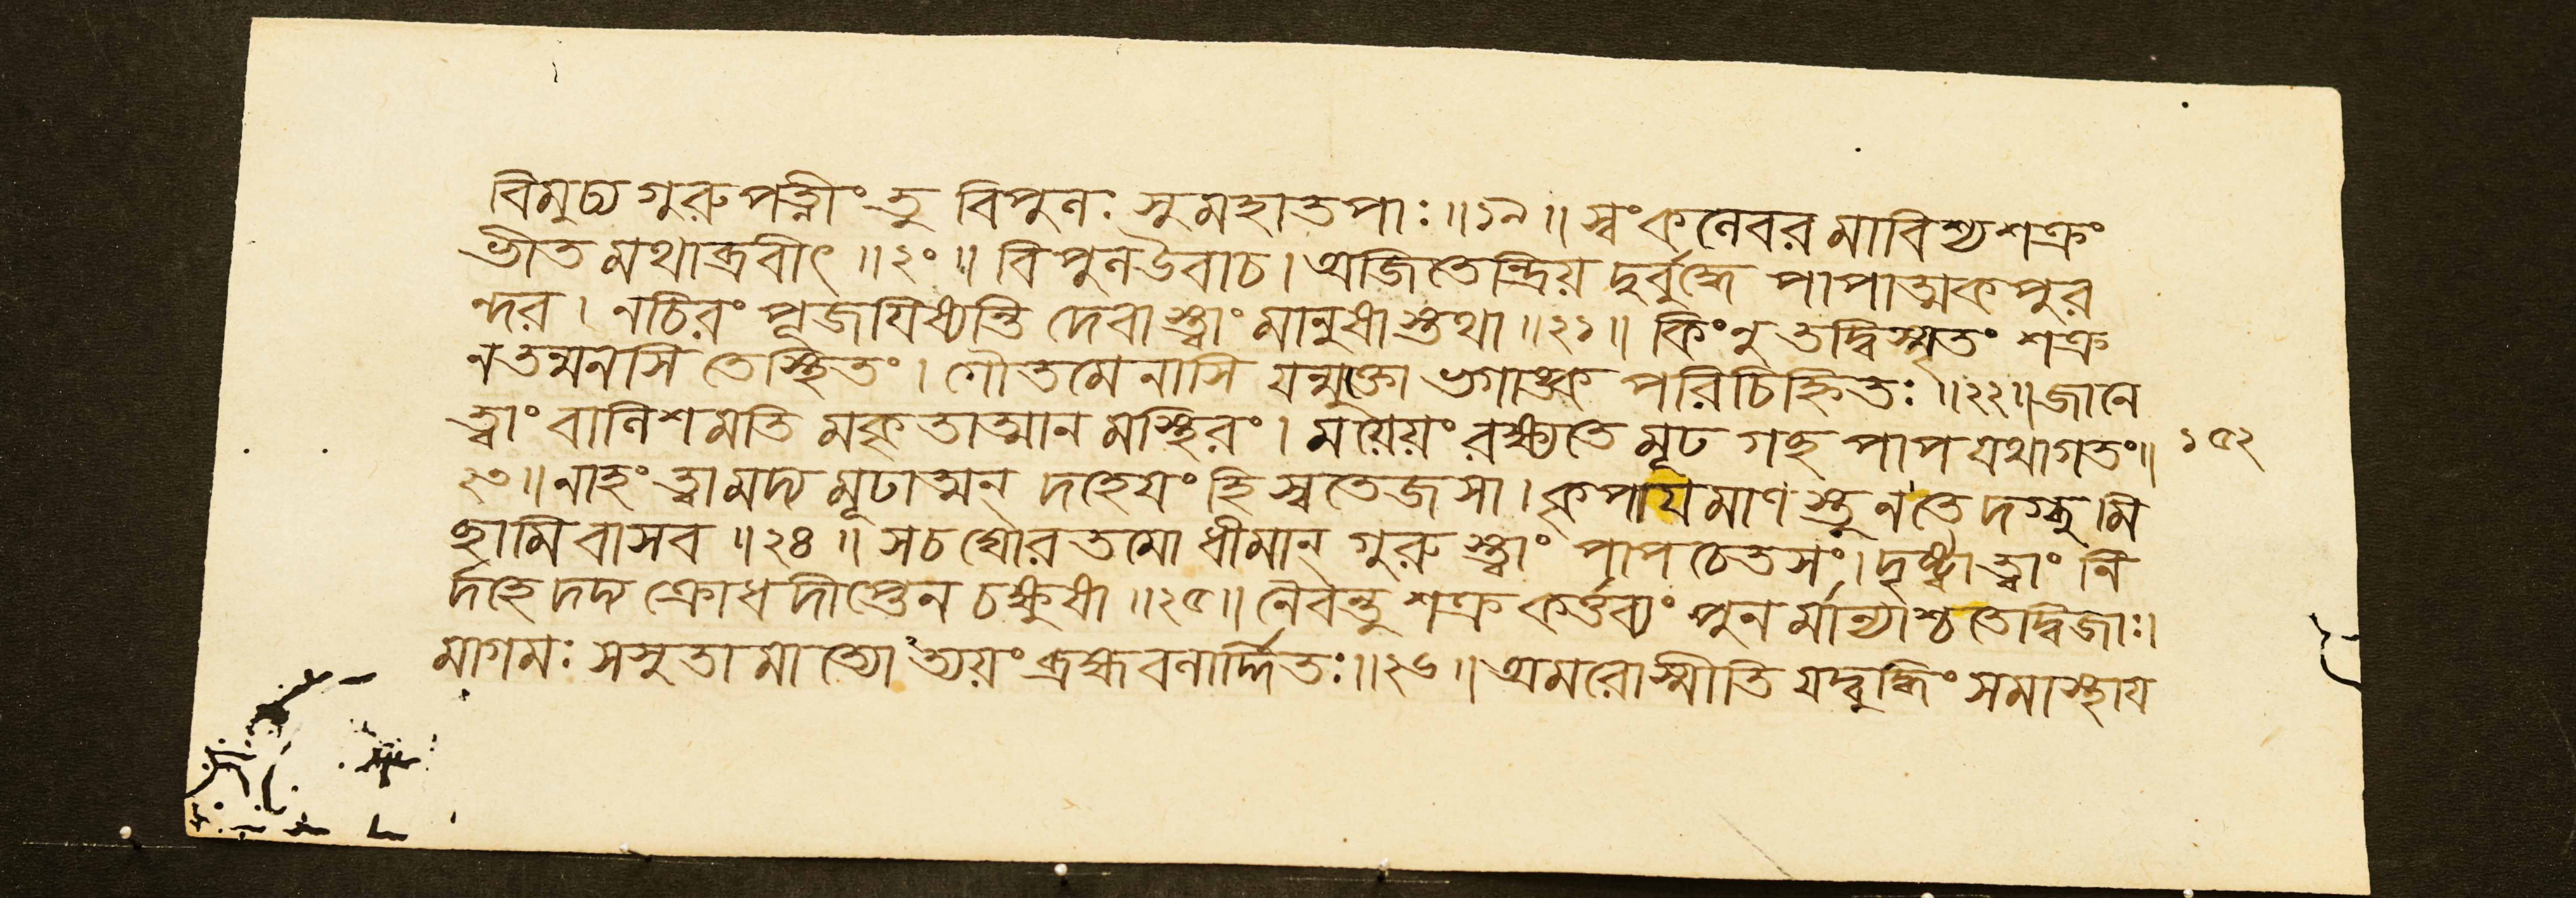 বিমুচ্য গুরুপত্নীং তু বিপুনঃ সুমহাতপাঃ ॥১৯॥ স্বং কনেবরমাবিশ্য শক্রং
ভীতমথাব্রবীৎ ॥২০॥ বিপুনউবাচ। অজিতেন্দ্রিয় দুর্বুদ্ধে পাপাত্মক পুর
ন্দর। নচিরং পূজযিষ্যন্তি দেবাস্ত্বাং মানুষাস্তথা ॥২১॥ কিং নু তদ্বিস্মৃতং শক্র
ন তন্মনসি তে স্থিতং। গৌতমেনাসি যন্মুক্তো ভগাঙ্ক পরিচিহ্নিতঃ ॥২২॥ জানে
ত্বাং বানিশমতিমকৃতাত্মানমস্থিরং। ময়েয়ং রক্ষ্যতে মূঢ গছ পাপ যথাগতং॥ ১৫২
২৩॥ নাহং ত্বামদ্য মূঢাত্মন্ দহেযং হি স্বতেজসা। কৃপাযমাণস্তু ন তে দগ্ধুমি
ছামি বাসব ॥২৪॥ স চ ঘোরতমো ধীমান্ গুরুস্ত্বাং পাপচেতসং। দৃষ্ট্বা ত্বাং নি
র্দহেদদ্য ক্রোধদীপ্তেন চক্ষুষা ॥২৫॥ নৈবন্তু শক্র কর্ত্তব্যং পুনর্মান্যাশ্চ তে দ্বিজাঃ।
মাগমঃ সসুতামাত্যোঽত্যয়ং ব্রহ্মবনার্দ্দিতঃ॥২৬॥ অমরোস্মীতি যদ্বুদ্ধিং সমাস্থায